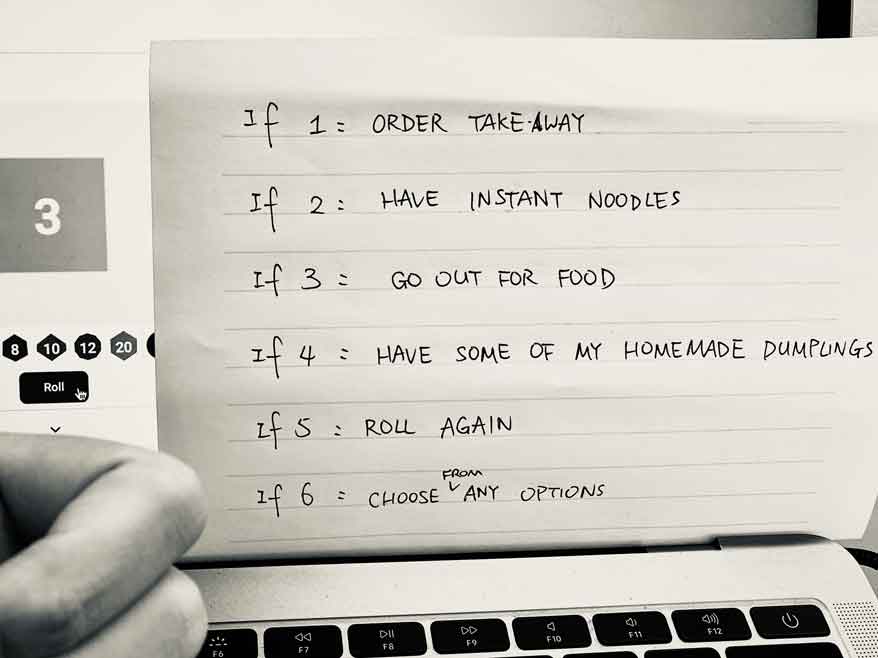 If 1 = ORDER TAKE-AWAY
If 2 = HAVE INSTANT NOODLES
If 3 = GO OUT FOR FOOD
If 4 = HAVE SOME OF MY HOMEMADE DUMPLINGS
If 5 = ROLL AGAIN
If 6 = CHOOSE FROM ANY OPTIONS
3
8 10 12 20
Roll
F6 F7 F8 F9 F10 F11 F12